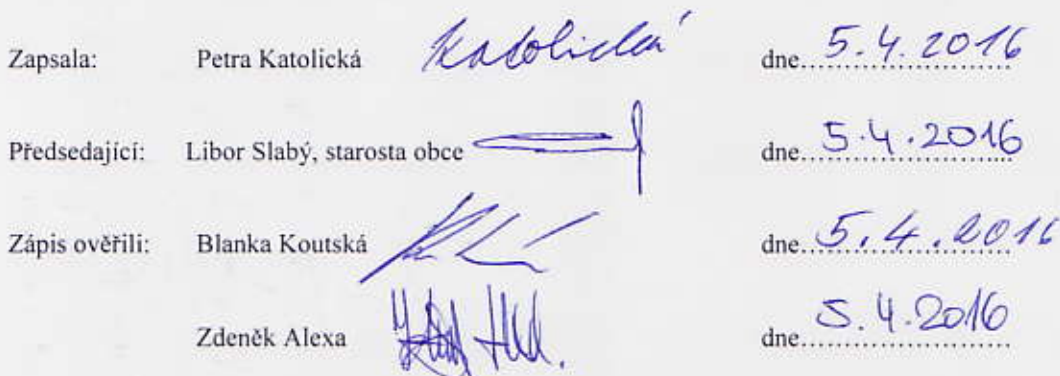 Zapsala: Petra Katolická Katolická dne 5.4.2016
Předsedající: Libor Slabý, starosta obce dne 5.4.2016
Zápis ověřili: Blanka Koutská dne 5.4.2016
Zdeněk Alexa dne 5.4.2016